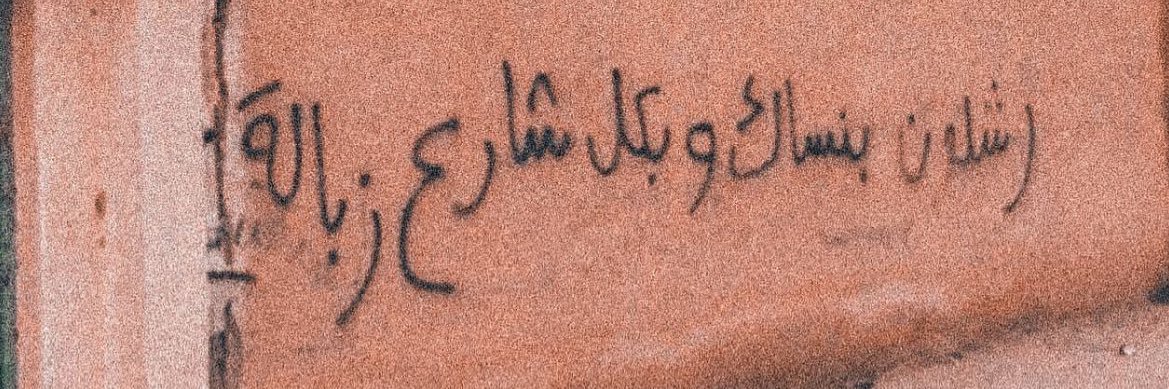 اشلون بنساك وبكل شارع زبالة